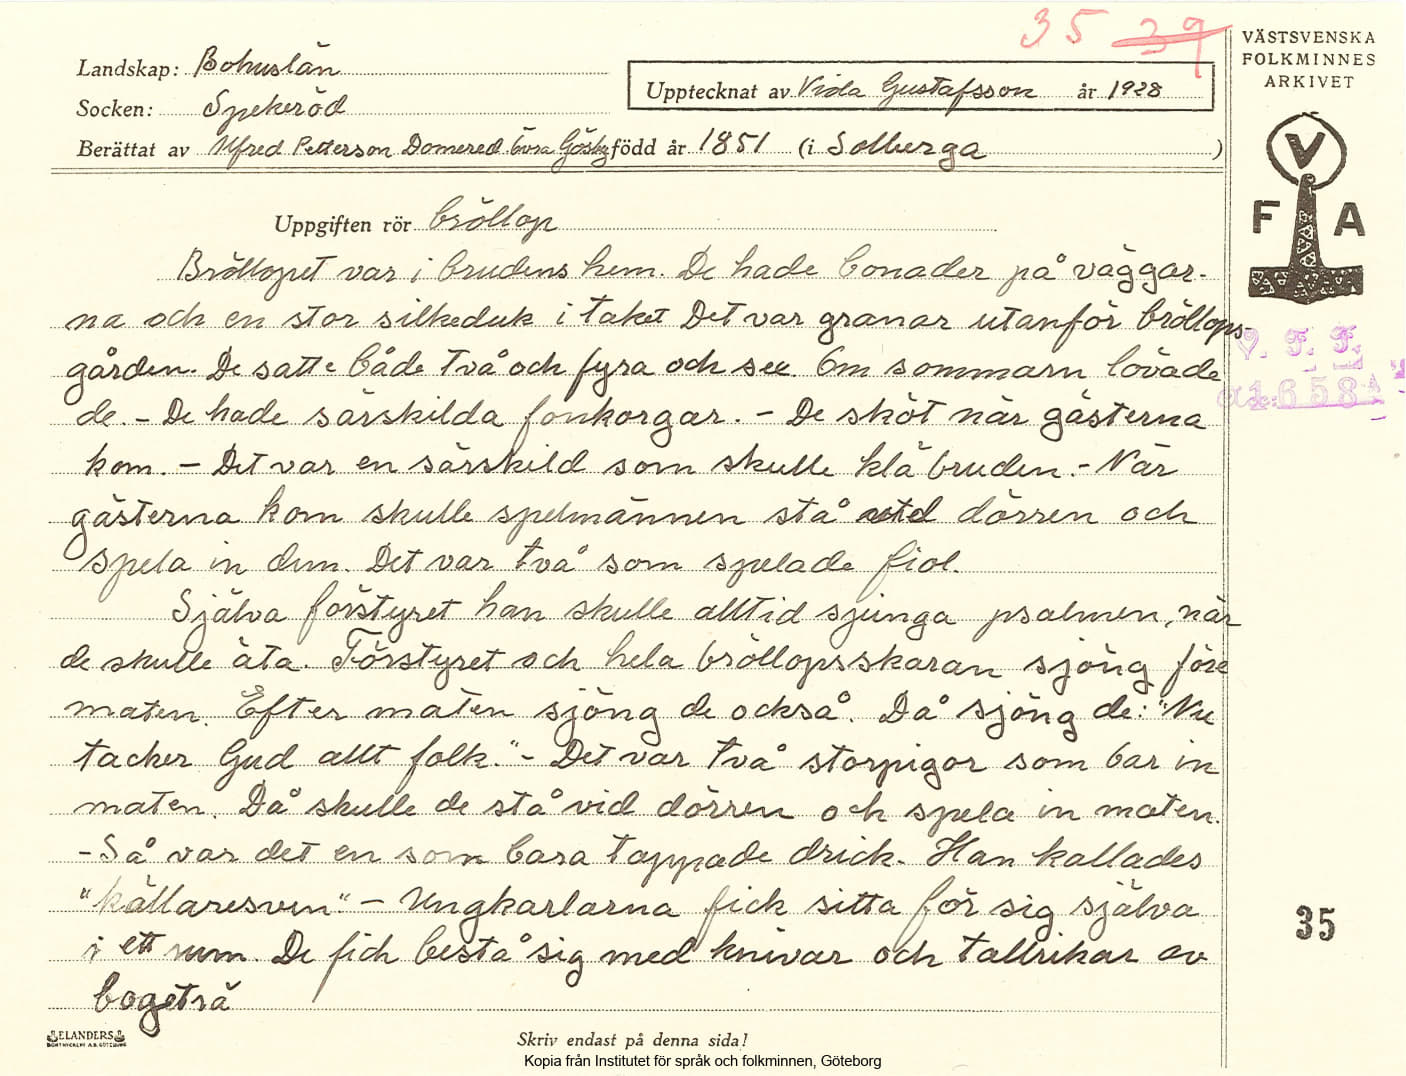 35 39
VÄSTSVENSKA
FOLKMINNES
ARKIVET
Landskap: Bohuslän
Upptecknat av Viola Gustafsson år 1928
Socken: Spekeröd
Berättat av Alfred Petterson Domered Övra Gösby född år 1851 (i Solberga )
V
F A
Uppgiften rör bröllop
Bröllopet var i brudens hem. De hade bonader på väggar-
na och en stor silkeduk i taket Det var granar utanför bröllops-
gården. De satte både två och fyra och sex. Om sommarn lövade
de. - De hade särskilda fonkorgar. - De sköt när gästerna
kom. - Det var en särskild som skulle klä bruden. - När
gästerna kom skulle spelmännen stå vid dörren och
spela in dem. Det var två som spelade fiol.
Själva förstyret han skulle alltid sjunga psalmen, när
de skulle äta. Förstyret och hela bröllopsskaran sjöng före
maten. Efter maten sjöng de också. Då sjöng de: "Nu
tacker Gud allt folk." - Det var två storpigor som bar in
maten. Då skulle de stå vid dörren och spela in maten.
- Så var det en som bara tappade drick. Han kallades
"källaresven". - Ungkarlarna fick sitta för sig själva
i ett rum. De fich bestå sig med knivar och tallrikar av
bogeträ
V. F. F.
1658
35
ELANDERS
BOKTRYCKERI A.B. GÖTEBORG
Skriv endast på denna sida!
Kopia från Institutet för språk och folkminnen, Göteborg